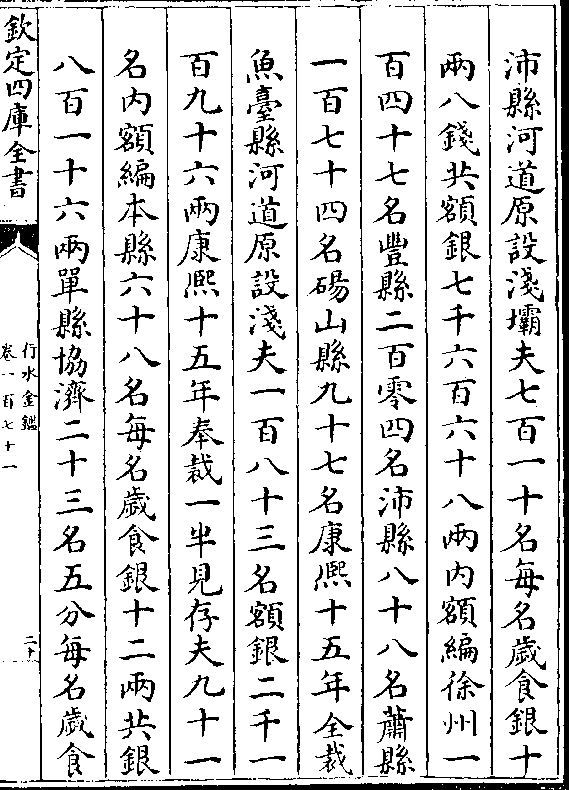 沛縣河道原設淺壩夫七百一十名每名歲食銀十
兩八錢共額銀七千六百六十八兩内額編徐州一
百四十七名豐縣二百零四名沛縣八十八名蕭縣
一百七十四名碭山縣九十七名康熙十五年全裁
魚臺縣河道原設淺夫一百八十三名額銀二千一
百九十六兩康熙十五年奉裁一半見存夫九十一
名内額編本縣六十八名每名歲食銀十二兩共銀
八百一十六兩單縣協濟二十三名五分每名歲食
欽定四庫全書
行水金鑑
卷一百七十一
二十